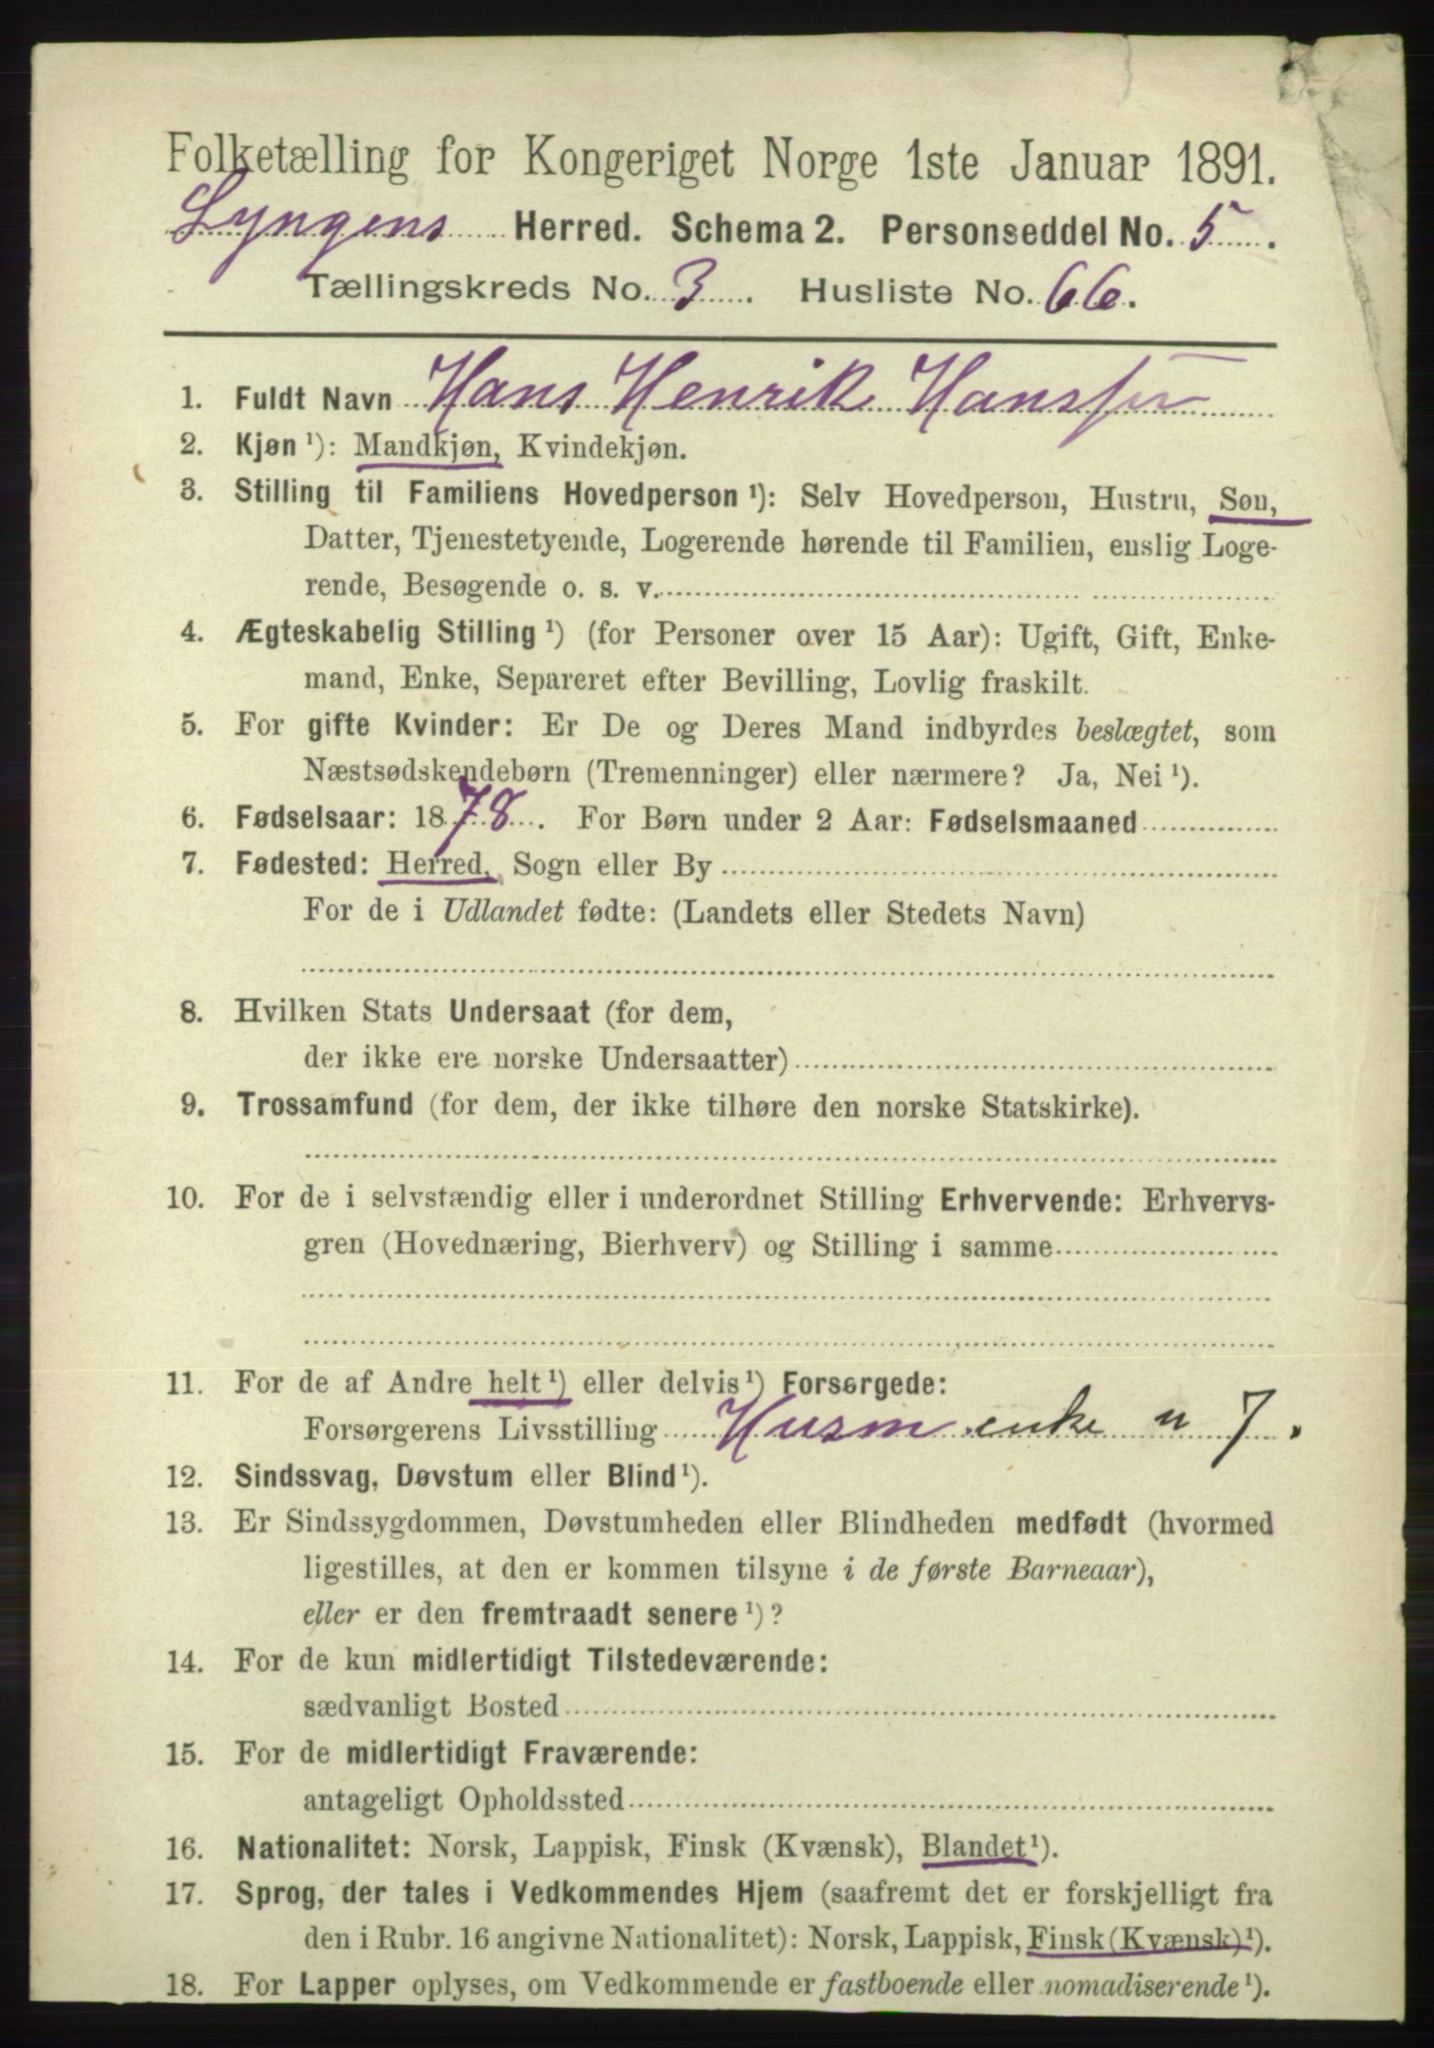 Folketælling for Kongeriget Norge 1ste Januar 1891.
Lyngens Herred. Schema 2. Personseddel No. 5.
Tællingskreds No. 3. Husliste No. 66.
1. Fuldt Navn Hans Henrik Hansen
2. Kjøn ¹): Mandkjøn, Kvindekjøn.
3. Stilling til Familiens Hovedperson ¹): Selv Hovedperson, Hustru, Søn,
Datter, Tjenestetyende, Logerende hørende til Familien, enslig Loge-
rende, Besøgende o. s. v.
4. Ægteskabelig Stilling ¹) (for Personer over 15 Aar): Ugift, Gift, Enke-
mand, Enke, Separeret efter Bevilling, Lovlig fraskilt.
5. For gifte Kvinder: Er De og Deres Mand indbyrdes beslægtet, som
Næstsødskendebørn (Tremenninger) eller nærmere? Ja, Nei ¹).
6. Fødselsaar: 1878. For Børn under 2 Aar: Fødselsmaaned
7. Fødested: Herred, Sogn eller By
For de i Udlandet fødte: (Landets eller Stedets Navn)
8. Hvilken Stats Undersaat (for dem,
der ikke ere norske Undersaatter)
9. Trossamfund (for dem, der ikke tilhøre den norske Statskirke).
10. For de i selvstændig eller i underordnet Stilling Erhvervende: Erhvervs-
gren (Hovednæring, Bierhverv) og Stilling i samme
11. For de af Andre helt ¹) eller delvis ¹) Forsørgede:
Forsørgerens Livsstilling Husm enke u 7.
12. Sindssvag, Døvstum eller Blind ¹).
13. Er Sindssygdommen, Døvstumheden eller Blindheden medfødt (hvormed
ligestilles, at den er kommen tilsyne i de første Barneaar),
eller er den fremtraadt senere ¹)?
14. For de kun midlertidigt Tilstedeværende:
sædvanligt Bosted
15. For de midlertidigt Fraværende:
antageligt Opholdssted
16. Nationalitet: Norsk, Lappisk, Finsk (Kvænsk), Blandet ¹).
17. Sprog, der tales i Vedkommendes Hjem (saafremt det er forskjelligt fra
den i Rubr. 16 angivne Nationalitet): Norsk, Lappisk, Finsk (Kvænsk) ¹).
18. For Lapper oplyses, om Vedkommende er fastboende eller nomadiserende ¹).